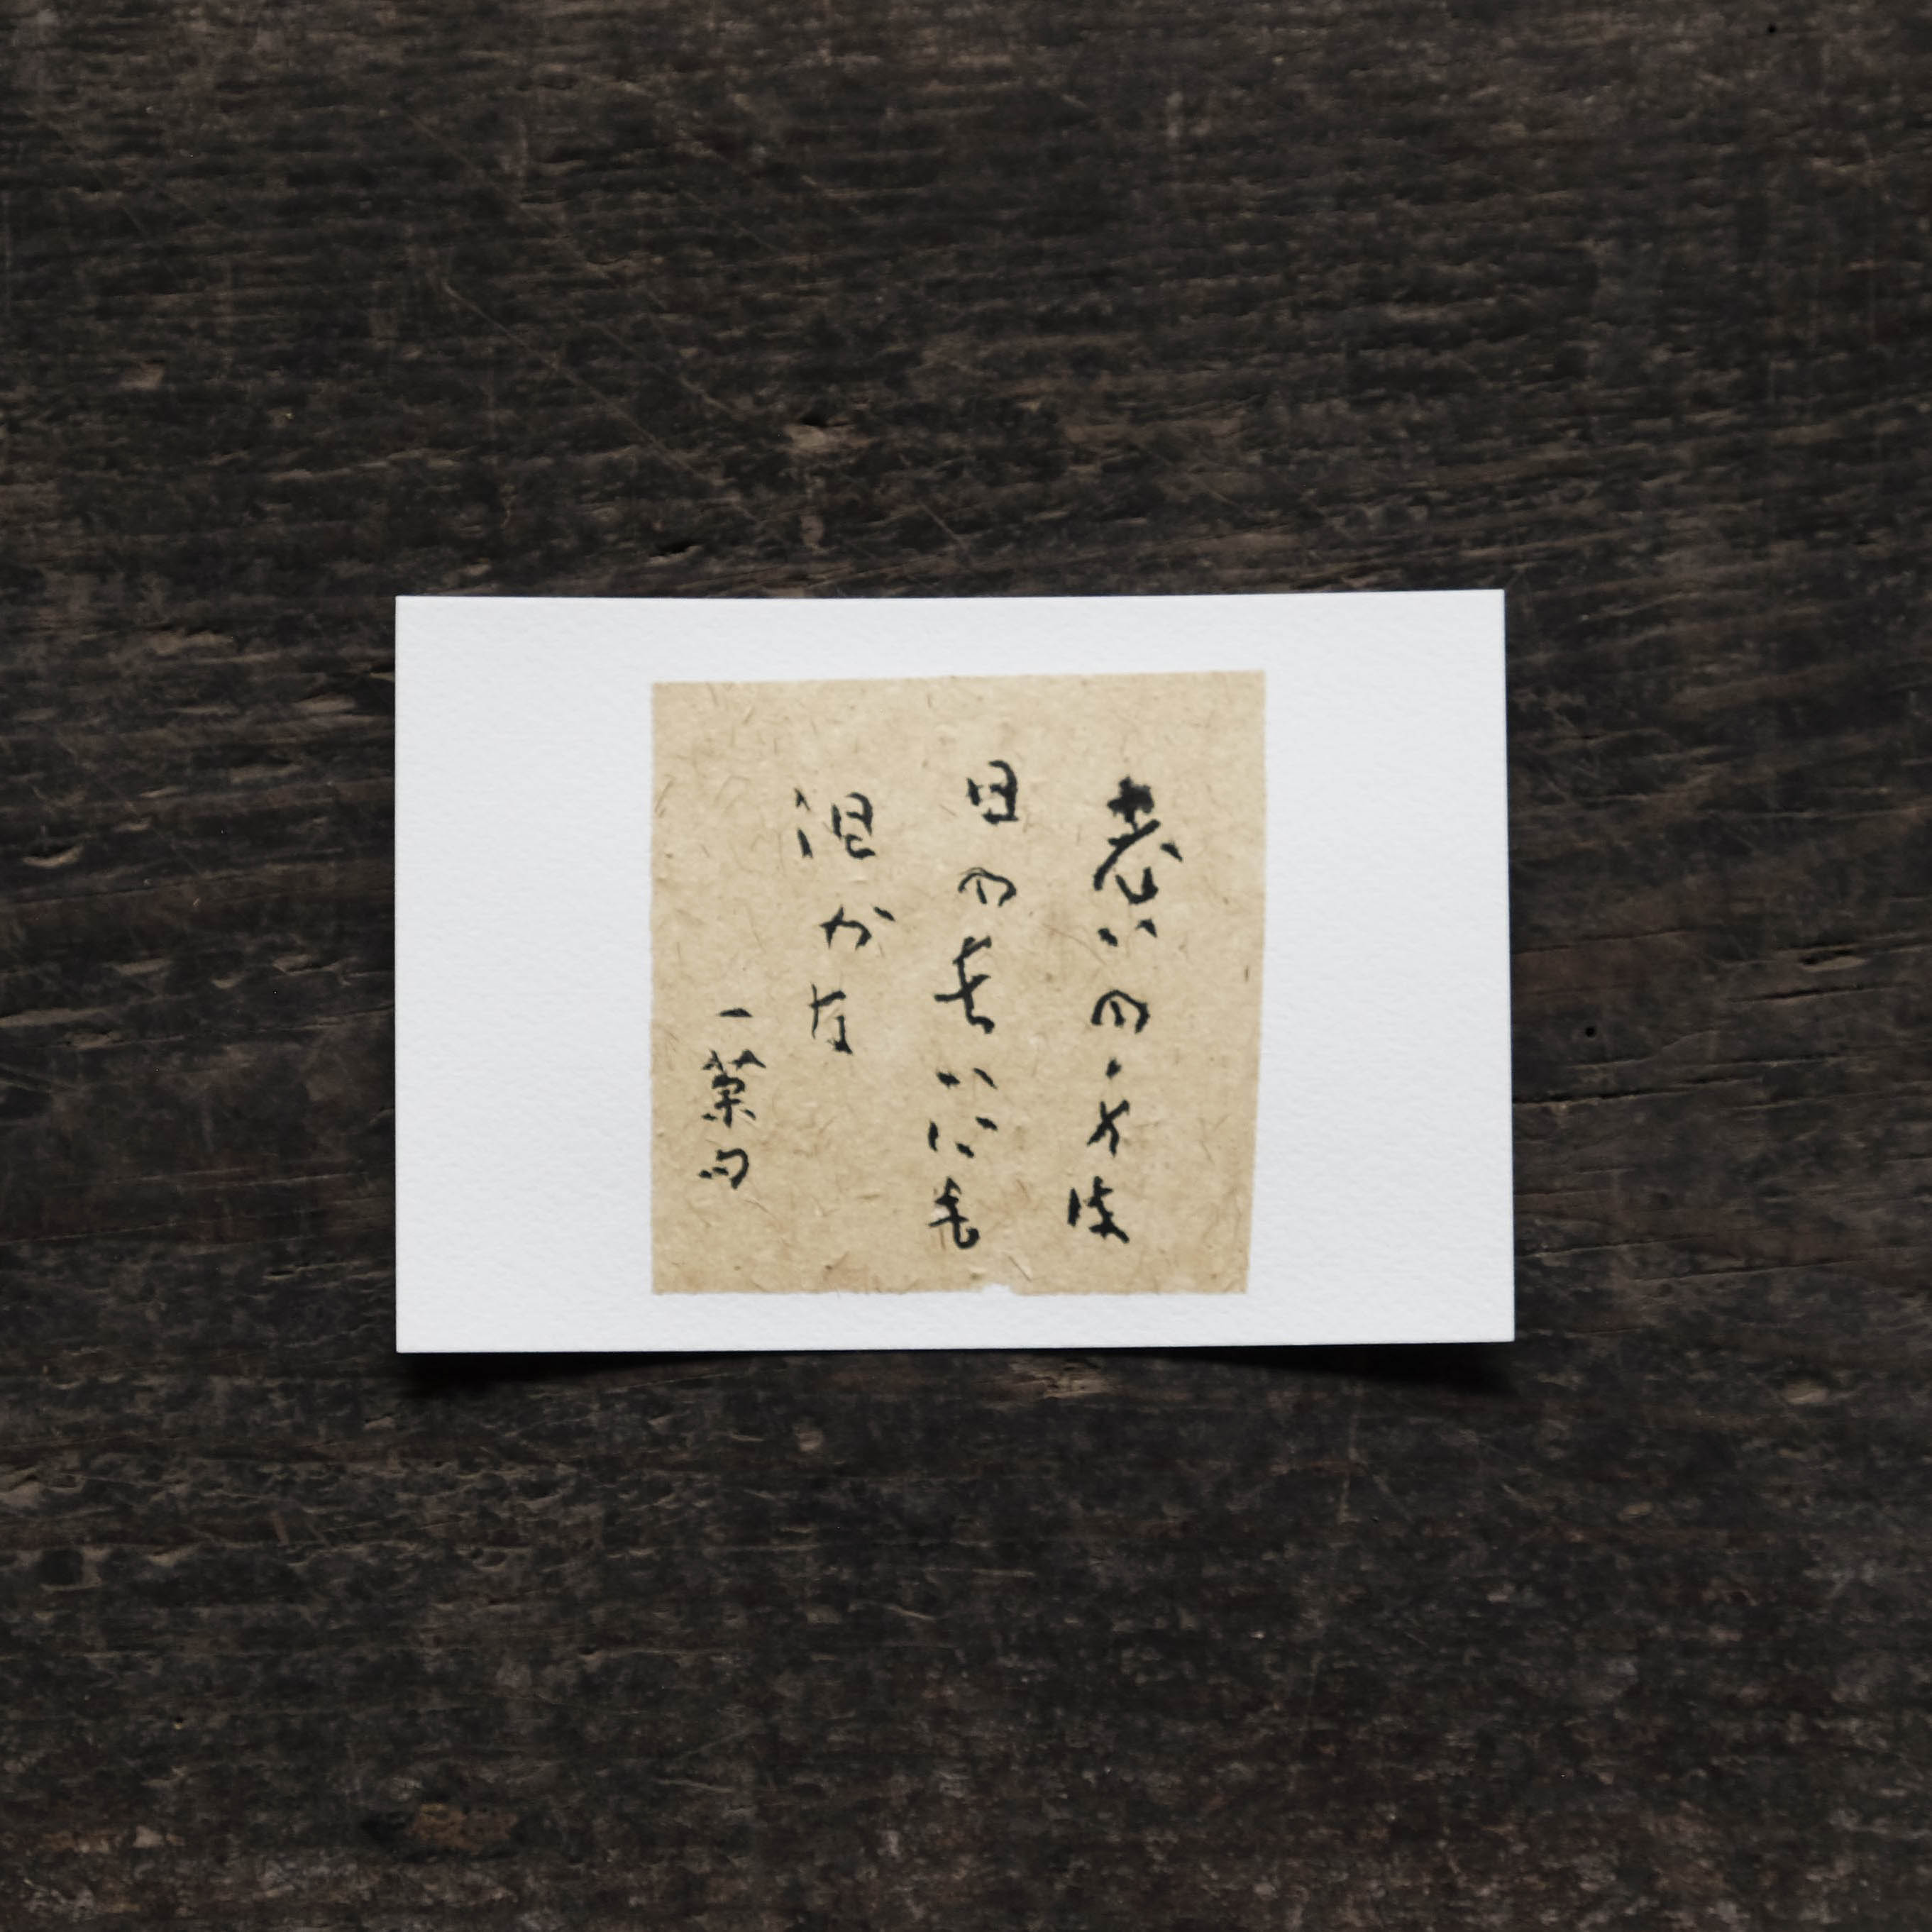 老いの身は
日の長いにも
泪かな
一茶句